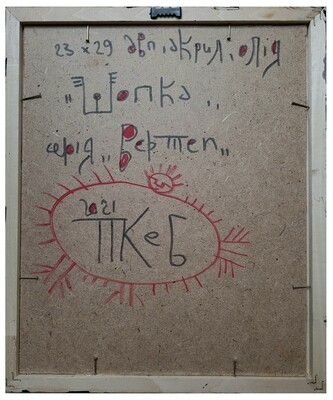 23 x 29 двп, акрил, олія
"Шопка"
серія "Вертеп"
2021
ПКеБ